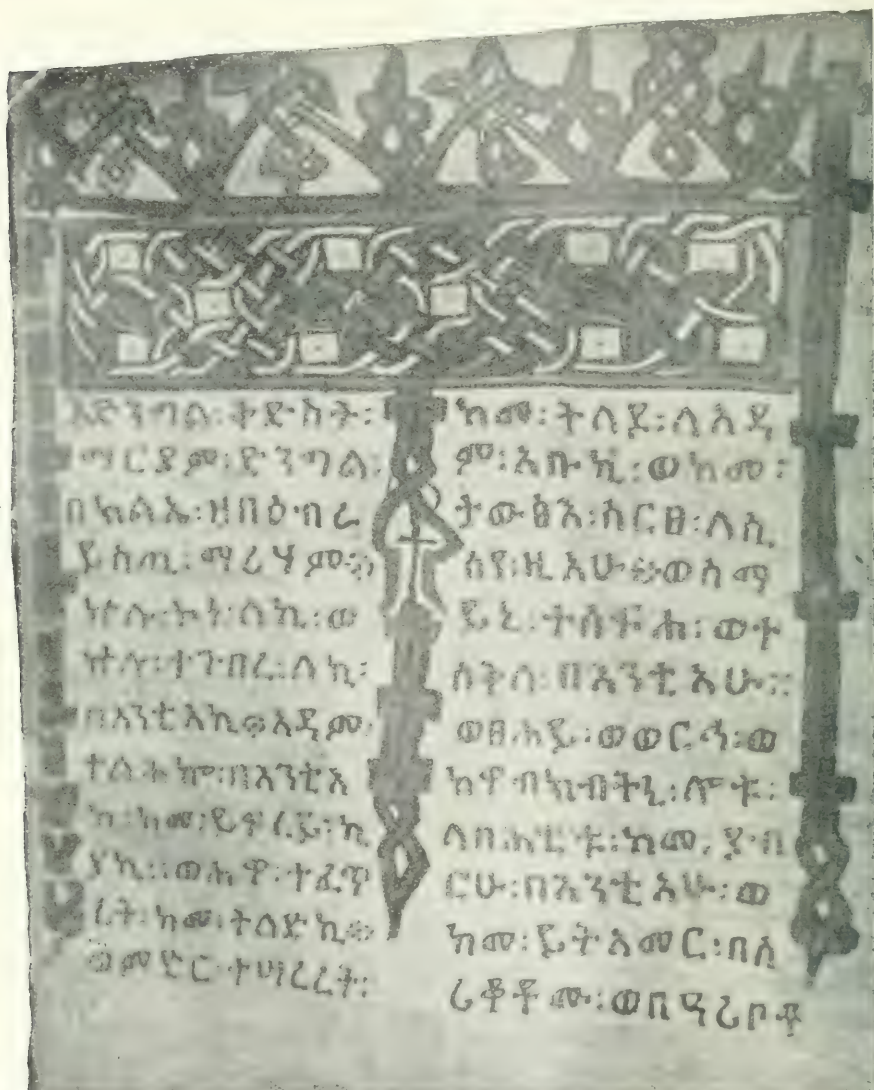 ኦድንግል፡ቅድስት፡
ማርያም፡ድንግል፡
በክልኤ፡ዘበዕብራ
ይስጢ፡ማሪሃም።
ኵሉ፡ኮነ፡ለኪ፡ወ
ኵሉ፡ተገብረ፡ለኪ፡
በእንቲአኪ።አዳም
ተልሕኮ፡በእንቲአ
ኪ፡ከመ፡ይኍረይ፡ኪ
ያኪ።ወሔዋ፡ተፈጥ
ረት፡ከመ፡ትለድኪ።
ወምድር፡ተሣረረት፡
ከመ፡ትለጁ፡ለአዳ
ም፡አቡኪ፡ወከመ፡
ታውፅእ፡ሰርፀ፡ለሲ
ሰየ፡ዚአሁ።ወሰማ
ይኒ፡ተሰፍሐ፡ወተ
ሰቅለ፡በእንቲአሁ።
ወፀሐይ፡ወወርኅ፡ወ
ከዋብክብትኒ፡ሎቱ፡
ለባሕቲቱ፡ከመ፡ያብ
ርሁ፡በእንቲአሁ፡ወ
ከመ፡ይትአመር፡በለ
ሪቆቶሙ፡ወበዓሪቦቶ